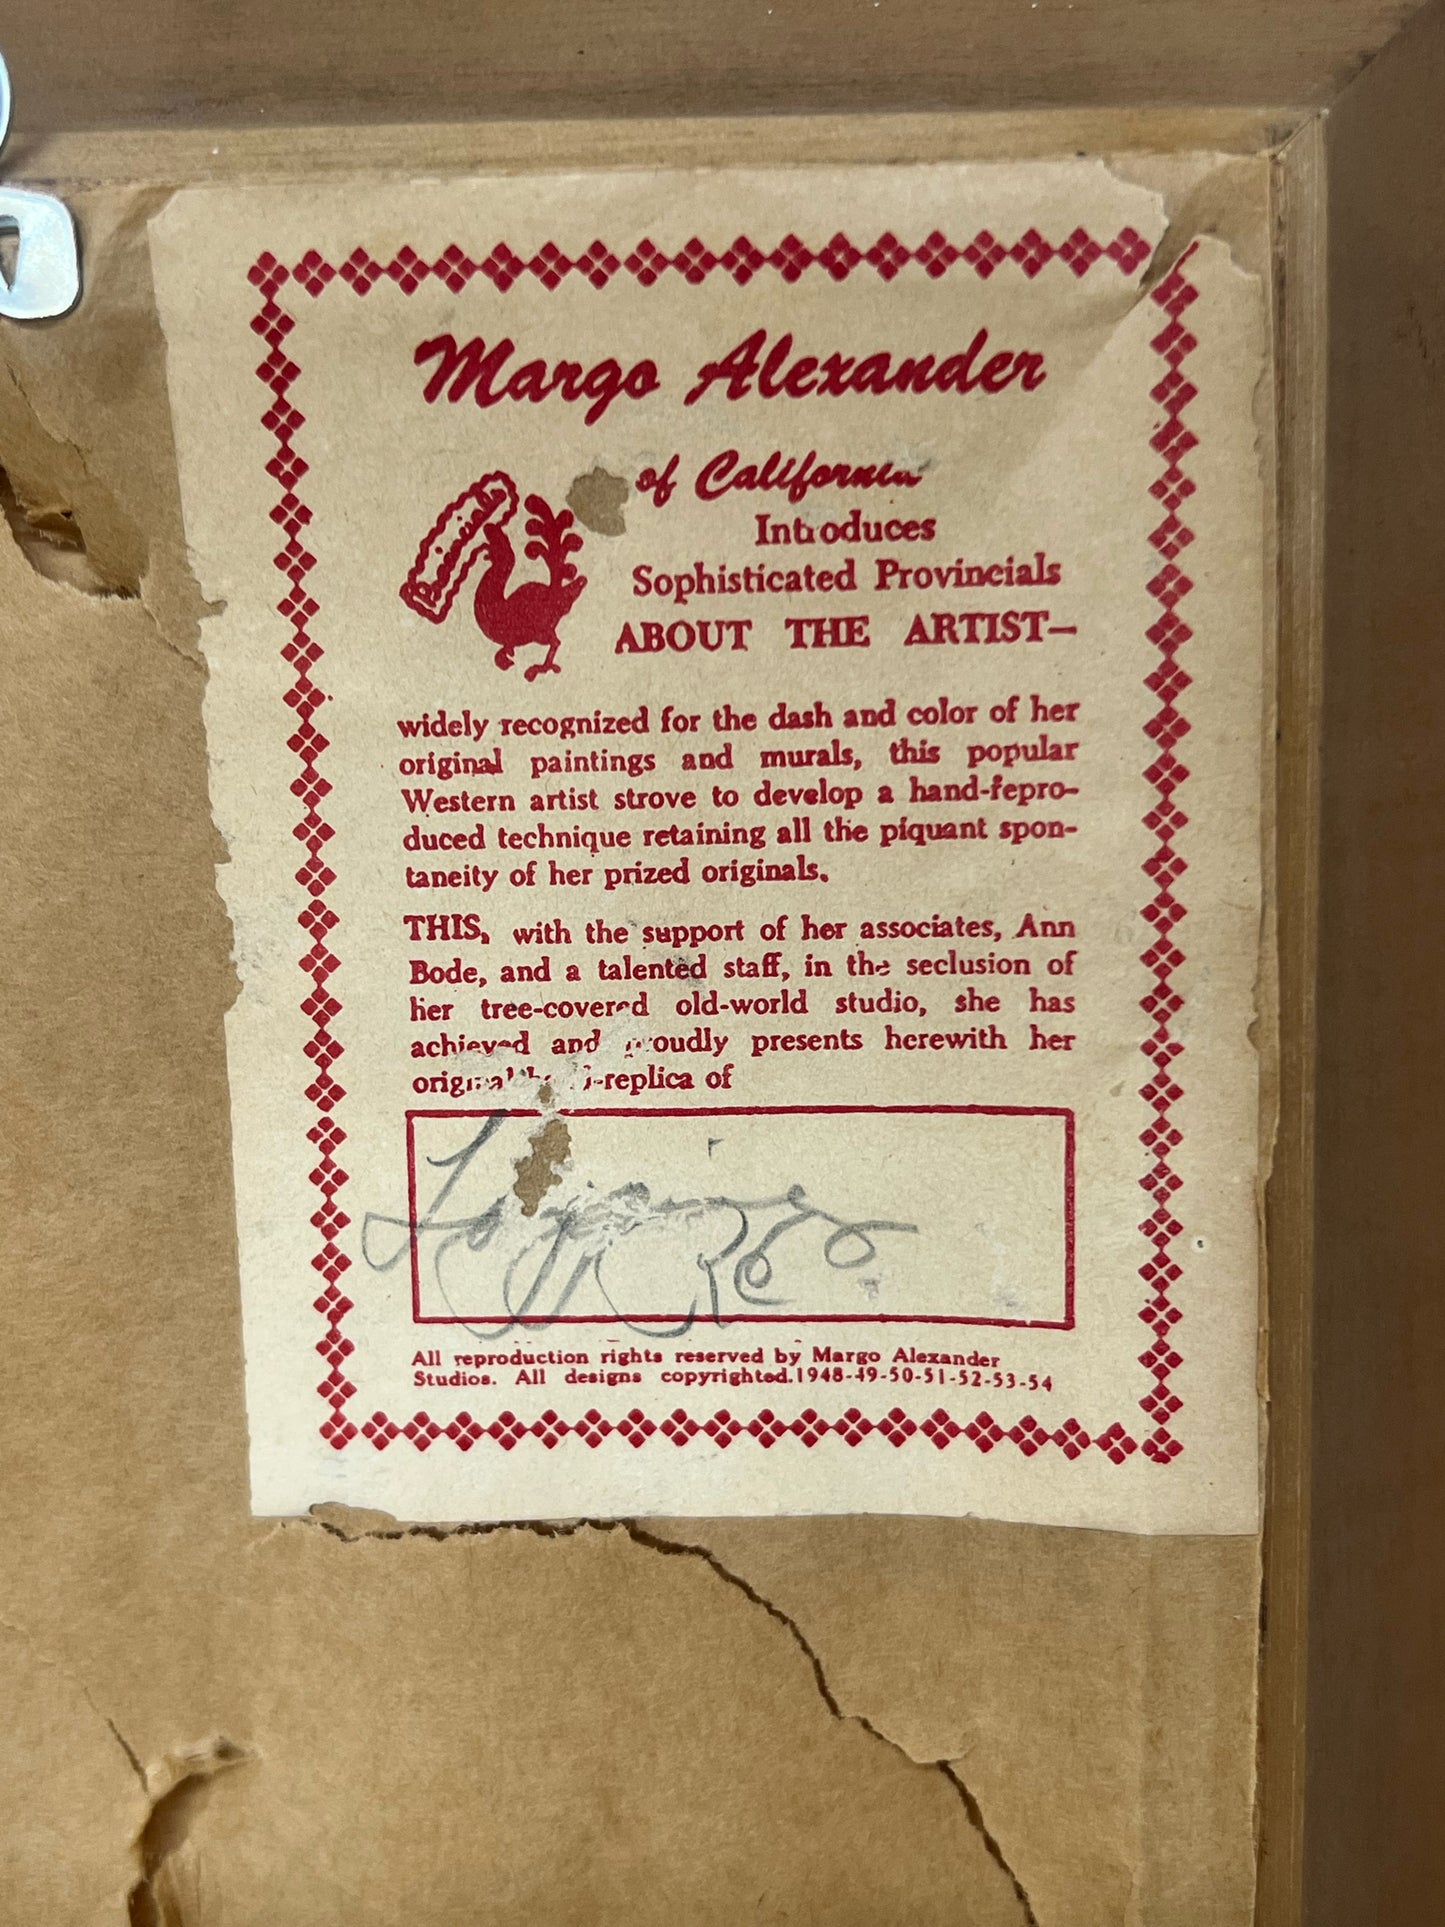 Margo Alexander
of California
Introduces
Sophisticated Provincials
ABOUT THE ARTIST—
widely recognized for the dash and color of her
original paintings and murals, this popular
Western artist strove to develop a hand-repro-
duced technique retaining all the piquant spon-
taneity of her prized originals.
THIS, with the support of her associates, Ann
Bode, and a talented staff, in the seclusion of
her tree-covered old-world studio, she has
achieved and proudly presents herewith her
original -replica of
All reproduction rights reserved by Margo Alexander
Studios. All designs copyrighted.1948-49-50-51-52-53-54